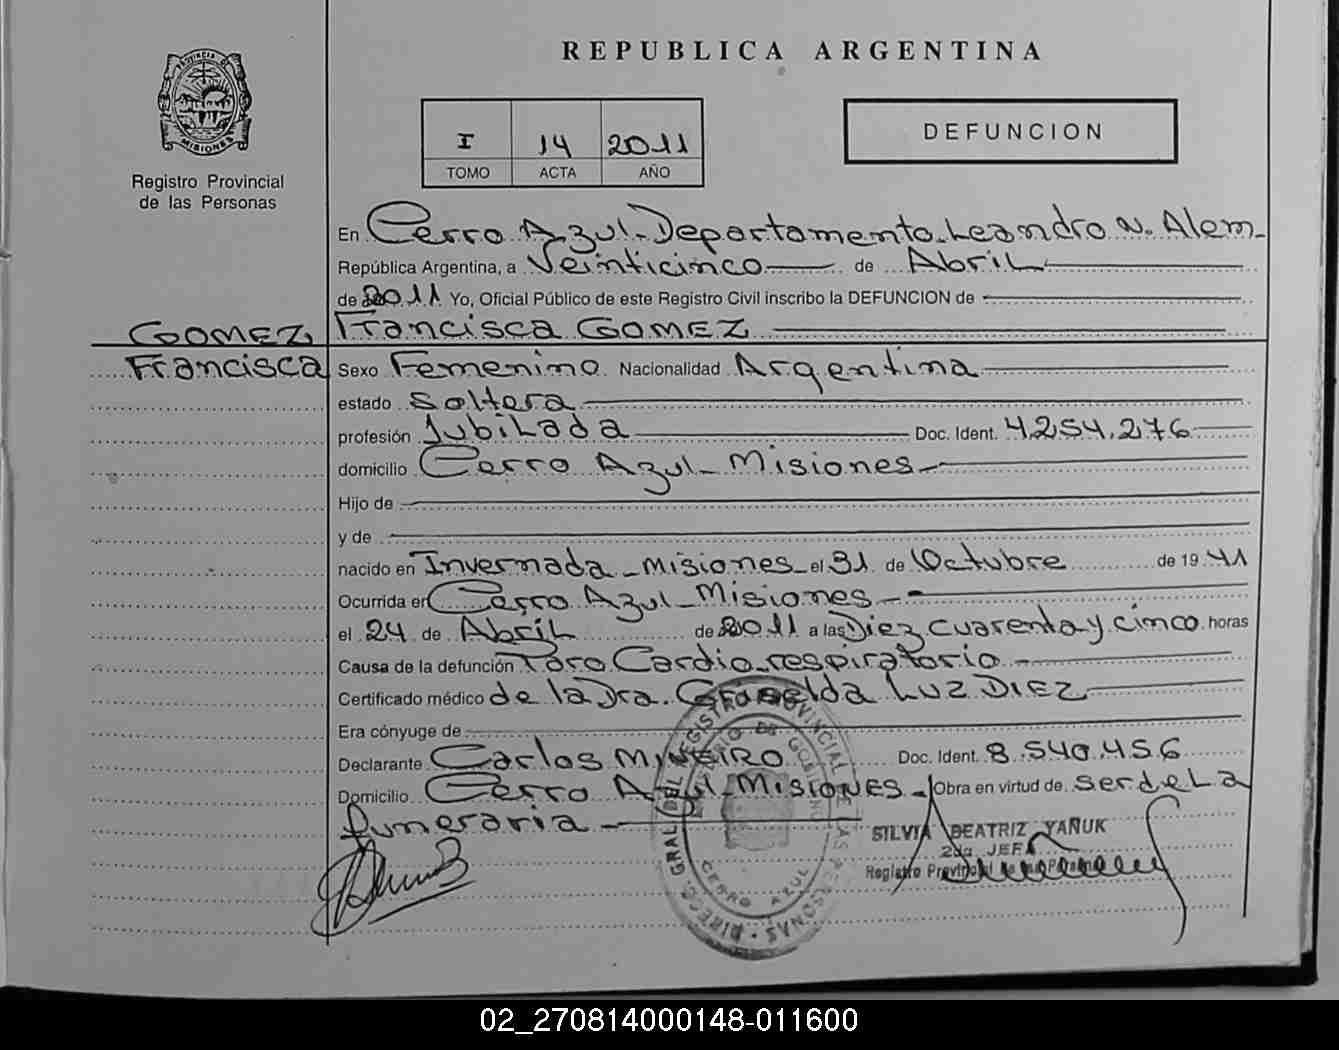 REPUBLICA ARGENTINA
PROVINCIA DE
MISIONES
Registro Provincial
de las Personas
I 14 2011
TOMO ACTA AÑO
DEFUNCION
En Cerro Azul-Departamento-Leandro N. Alem-
República Argentina, a Veinticinco de Abril
de 2011 Yo, Oficial Público de este Registro Civil inscribo la DEFUNCION de
GOMEZ, Francisca GOMEZ
Francisca Sexo Femenino Nacionalidad Argentina
estado soltera
profesión Jubilada Doc. Ident. 4.254.276
domicilio Cerro Azul-Misiones-
Hijo de
y de
nacido en Invernada-Misiones-el 31 de Octubre de 1941
Ocurrida en Cerro Azul-Misiones-
el 24 de Abril de 2011 a las Diez cuarenta y cinco horas
Causa de la defunción Paro Cardio-respiratorio-
Certificado médico de la Dra. Griselda LUZ DIEZ
Era cónyuge de
Declarante Carlos MIÑEIRO Doc. Ident. 8.540.456
Domicilio Cerro Azul-Misiones- Obra en virtud de ser de La
funeraria-
SILVIA BEATRIZ YAÑUK
2da JEFA
Registro Provincial de las Personas
DIRECC. GRAL. DEL REGISTRO PROVINCIAL DE LAS PERSONAS
CERRO AZUL
02_270814000148-011600